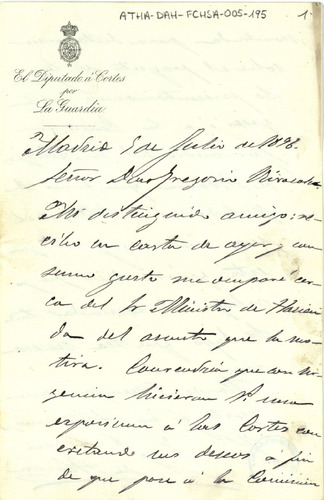 ATHA-DAH-FCHSA-005-195
1
El Diputado á Cortes
por
La Guardia
Madrid 5 de Julio de 1898.
Señor Don Gregorio
Mi distinguido amigo: re-
cibo su carta de ayer, y con
sumo gusto me ocuparé cer-
ca del Sr Ministro de Hacien-
da del asunto que la mo-
tiva. Convendría que con ur-
gencia hicieran Vs. una
exposicion á las Cortes con
cretando sus deseos á fin
de que pase á la Comision